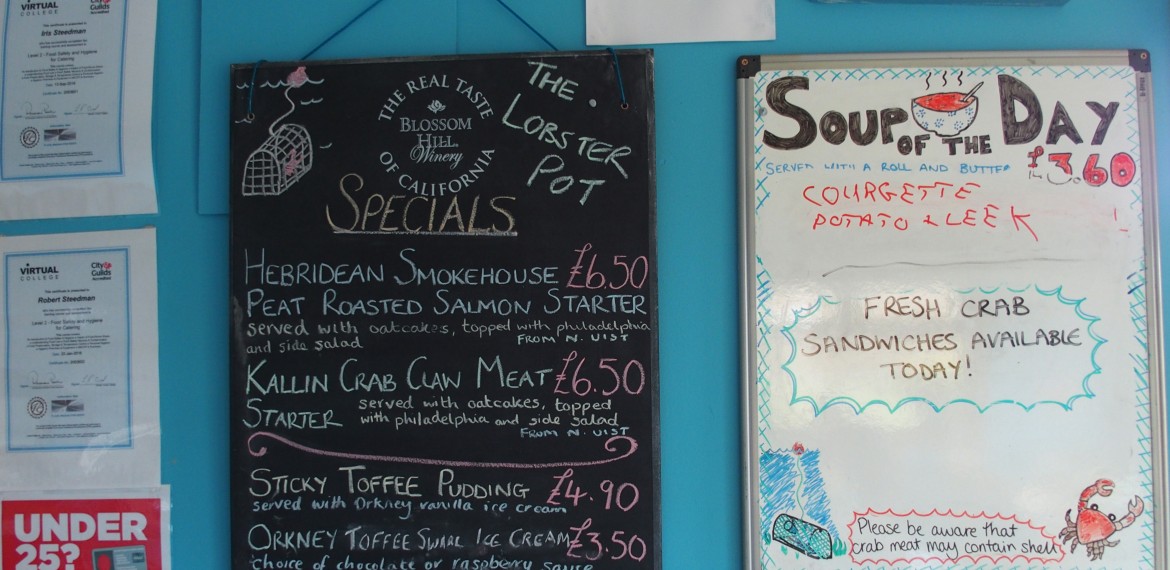 VIRTUAL
COLLEGE
City &
Guilds
Accredited
This certificate is presented to
Iris Steedman
Level 2 - Food Safety and Hygiene
for Catering
VIRTUAL
COLLEGE
City &
Guilds
Accredited
This certificate is presented to
Robert Steedman
Level 2 - Food Safety and Hygiene
for Catering
UNDER
25?
THE REAL TASTE
BLOSSOM
HILL
Winery
OF CALIFORNIA
THE
LOBSTER
POT
SPECIALS
HEBRIDEAN SMOKEHOUSE £6.50
PEAT ROASTED SALMON STARTER
served with oatcakes, topped with philadelphia
and side salad FROM N. UIST
KALLIN CRAB CLAW MEAT £6.50
STARTER served with oatcakes, topped
with philadelphia and side salad
FROM N. UIST
STICKY TOFFEE PUDDING £4.90
served with Orkney vanilla ice cream
ORKNEY TOFFEE ICE CREAM £3.50
choice of chocolate or raspberry sauce
SOUP OF THE DAY
SERVED WITH A ROLL AND BUTTER £3.60
COURGETTE
POTATO & LEEK
FRESH CRAB
SANDWICHES AVAILABLE
TODAY!
Please be aware that
crab meat may contain shell